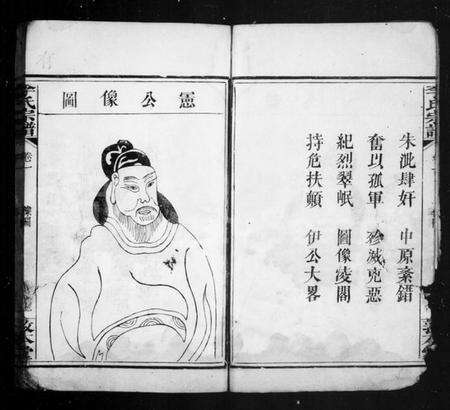 李氏宗譜
卷一
圖像公憲
朱泚肆奸 中原紊錯
奮以孤軍 殄滅兇惡
紀烈翠岷 圖像凌閣
持危扶顛 伊公大畧
李氏宗譜